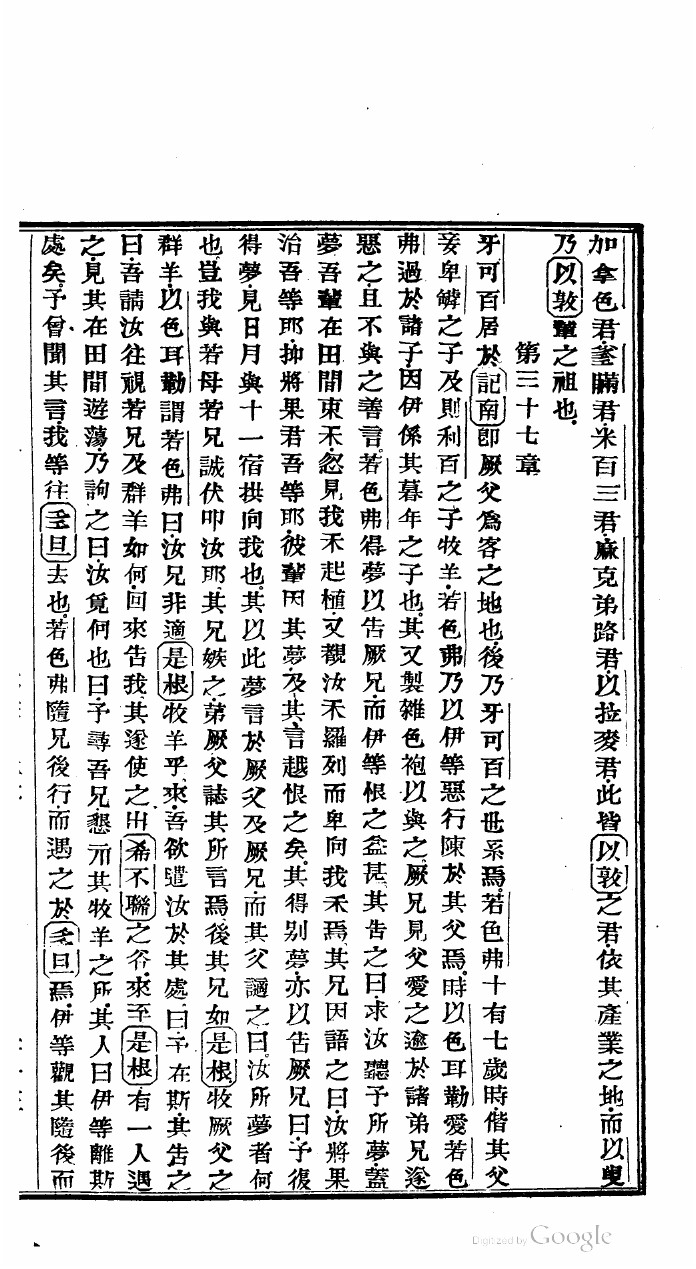 加拿色君鿍瞞君米百三君麻克弟路君以拉麥君此皆以敦之君依其產業之地而以叟
乃以敦輩之祖也
第三十七章
牙可百居於記南卽厥父為客之地也後乃牙可百之世系焉若色弗十有七歲時偕其父
妾卑罅之子及則利百之子牧羊若色弗乃以伊等惡行陳於其父焉時以色耳勒愛若色
弗過於諸子因伊係其暮年之子也其又製雜色袍以與之厥兄見父愛之逾於諸弟兄遂
惡之且不與之善言若色弗得夢以告厥兄而伊等恨之益甚其告之曰求汝聽予所夢蓋
夢吾輩在田間束禾忽見我禾起植又觀汝禾羅列而卑向我禾焉其兄因語之曰汝將果
治吾等耶抑將果君吾等耶彼輩因其夢及其言越恨之矣其得别夢亦以告厥兄曰予復
得夢見日月與十一宿拱向我也其以此夢言於厥父及厥兄而其父讁之曰汝所夢者何
也豈我與若母若兄誠伏叩汝耶其兄嫉之第厥父誌其所言焉後其兄如是根牧厥父之
群羊以色耳勒謂若色弗曰汝兄非適是根牧羊乎來吾欲遣汝於其處曰予在斯其告之
曰吾請汝往視若兄及群羊如何回來告我其遂使之出希不聯之谷來至是根有一人遇
之見其在田間遊蕩乃詢之曰汝覓何也曰予尋吾兄懇示其牧羊之所其人曰伊等離斯
處矣予曾聞其言我等往旦去也若色弗隨兄後行而遇之於旦焉伊等觀其隨後而
Digitized by Google